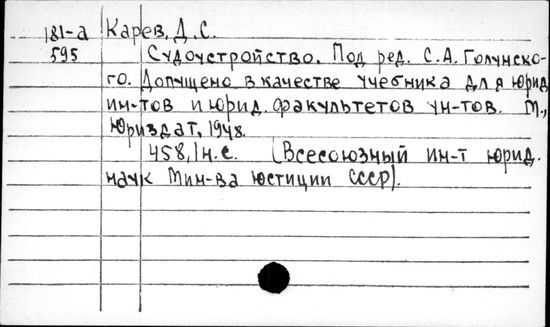 181-а Карев, Д. С.
595 Судоустройство. Под ред. С.А. Голунско-
го. Допущено в качестве учебника для юрид
ин-тов и юрид. факультетов ун-тов. М.,
Юриздат, 1948.
458,1н.с. (Всесоюзный ин-т юрид.
наук Мин-ва юстиции СССР).